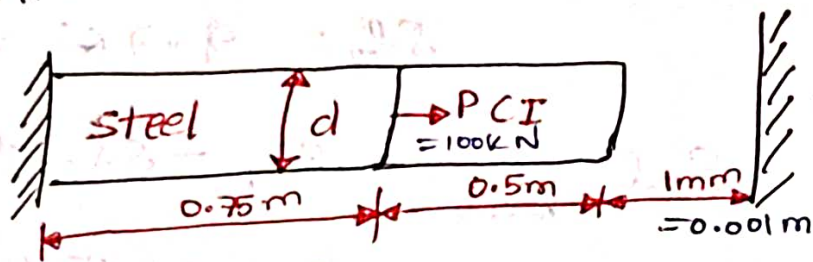 steel d P CI
=100KN
0.75m 0.5m 1mm
=0.001m